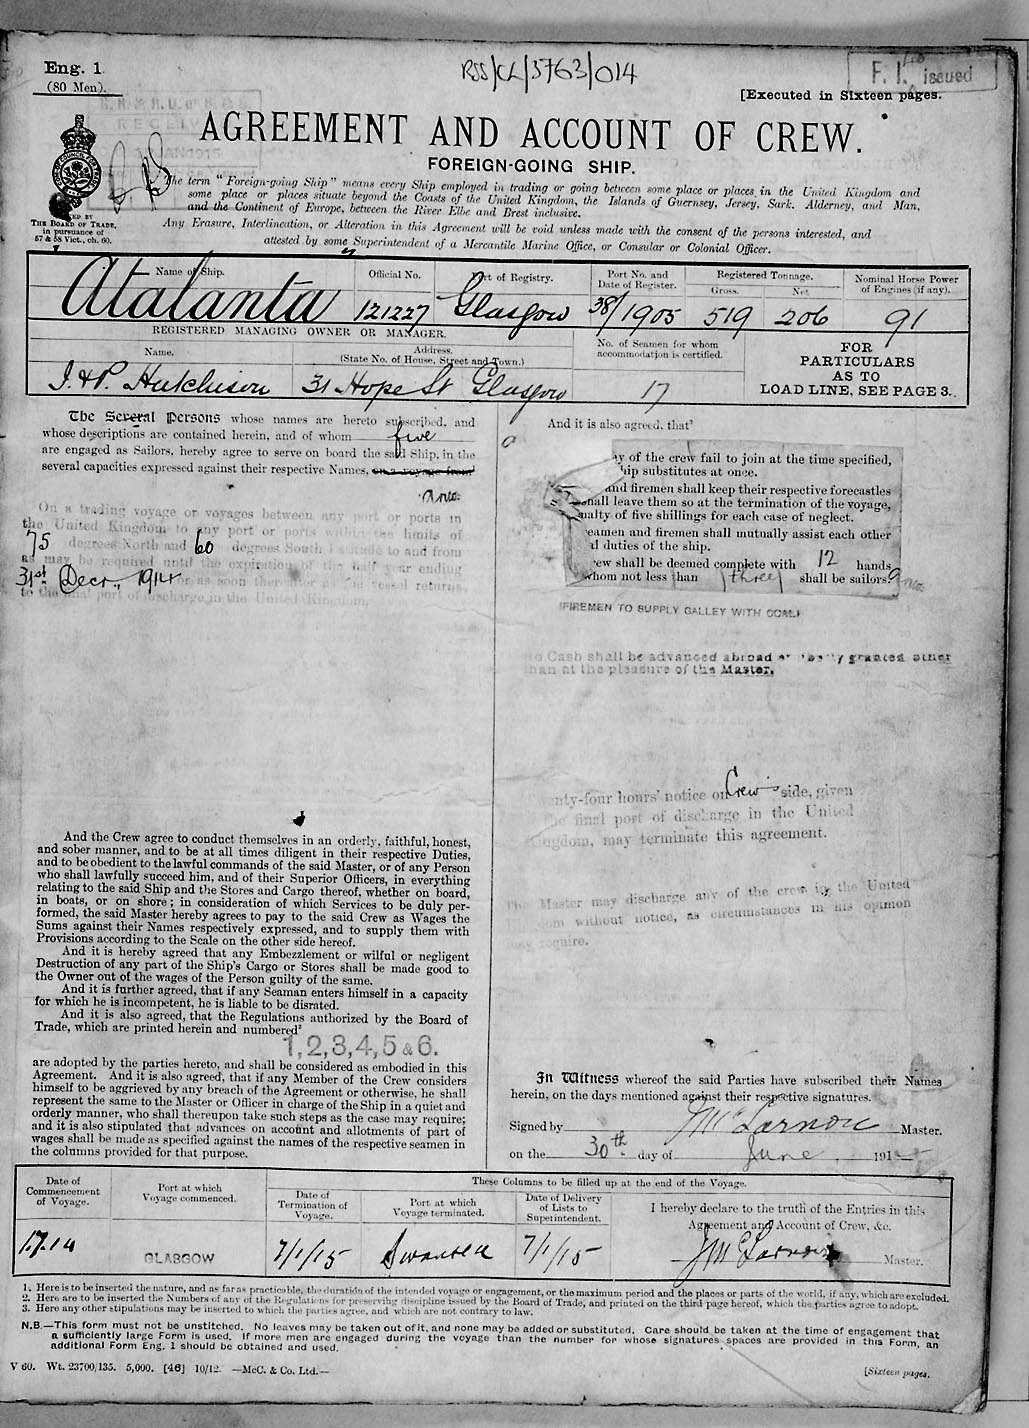 Eng. 1
(80 Men).
RSS/CL/3763/014
F. I. issued
[Executed in Sixteen pages.
RECEIV
AGREEMENT AND ACCOUNT OF CREW.
FOREIGN-GOING SHIP.
The term "Foreign-going Ship" means every Ship employed in trading or going between some place or places in the United Kingdom and
some place or places situate beyond the Coasts of the United Kingdom, the Islands of Guernsey, Jersey, Sark, Alderney, and Man,
and the Continent of Europe, between the River Elbe and Brest inclusive.
Any Erasure, Interlineation, or Alteration in this Agreement will be void unless made with the consent of the persons interested, and
attested by some Superintendent of a Mercantile Marine Office, or Consular or Colonial Officer.
THE BOARD OF TRADE,
in pursuance of
57 & 58 Vict., ch. 60.
Name of Ship. Official No. Port of Registry. Port No. and Date of Register. Registered Tonnage. Gross. Net. Nominal Horse Power of Engines (if any).
Atalanta 121227 Glasgow 38/1905 519 206 91
REGISTERED MANAGING OWNER OR MANAGER.
Name. Address. (State No. of House, Street and Town.) No. of Seamen for whom accommodation is certified.
J. & P. Hutchison 31 Hope St Glasgow 17
FOR
PARTICULARS
AS TO
LOAD LINE, SEE PAGE 3.
The Several Persons whose names are hereto subscribed, and
whose descriptions are contained herein, and of whom five
are engaged as Sailors, hereby agree to serve on board the said Ship, in the
several capacities expressed against their respective Names, on a voyage from
On a trading voyage or voyages between any port or ports in
the United Kingdom to any port or ports within the limits of
75 degrees North and 60 degrees South to and from
as may be required until the expiration of the half year ending
31st Decr., 1914 or as soon thereafter as the vessel returns
to the final port of discharge in the United Kingdom.
And the Crew agree to conduct themselves in an orderly, faithful, honest,
and sober manner, and to be at all times diligent in their respective Duties,
and to be obedient to the lawful commands of the said Master, or of any Person
who shall lawfully succeed him, and of their Superior Officers, in everything
relating to the said Ship and the Stores and Cargo thereof, whether on board,
in boats, or on shore; in consideration of which Services to be duly per-
formed, the said Master hereby agrees to pay to the said Crew as Wages the
Sums against their Names respectively expressed, and to supply them with
Provisions according to the Scale on the other side hereof.
And it is hereby agreed that any Embezzlement or wilful or negligent
Destruction of any part of the Ship's Cargo or Stores shall be made good to
the Owner out of the wages of the Person guilty of the same.
And it is further agreed, that if any Seaman enters himself in a capacity
for which he is incompetent, he is liable to be disrated.
And it is also agreed, that the Regulations authorized by the Board of
Trade, which are printed herein and numbered²
1, 2, 3, 4, 5 & 6.
are adopted by the parties hereto, and shall be considered as embodied in this
Agreement. And it is also agreed, that if any Member of the Crew considers
himself to be aggrieved by any breach of the Agreement or otherwise, he shall
represent the same to the Master or Officer in charge of the Ship in a quiet and
orderly manner, who shall thereupon take such steps as the case may require;
and it is also stipulated that advances on account and allotments of part of
wages shall be made as specified against the names of the respective seamen in
the columns provided for that purpose.
And it is also agreed, that³
ny of the crew fail to join at the time specified,
hip substitutes at once.
and firemen shall keep their respective forecastles
hall leave them so at the termination of the voyage,
nalty of five shillings for each case of neglect.
eamen and firemen shall mutually assist each other
al duties of the ship.
ew shall be deemed complete with 12 hands
whom not less than three shall be sailors.
FIREMEN TO SUPPLY GALLEY WITH COAL
No Cash shall be advanced abroad or liberty granted other
than at the pleasure of the Master.
nty-four hours' notice on Crew's side, given
the final port of discharge in the United
ngdom, may terminate this agreement.
The Master may discharge any of the crew in the United
dom without notice, as circumstances in his opinion
may require.
In Witness whereof the said Parties have subscribed their Names
herein, on the days mentioned against their respective signatures.
Signed by J McLarnon Master.
on the 30th day of June 191
Date of Commencement of Voyage. Port at which Voyage commenced. These Columns to be filled up at the end of the Voyage.
Date of Termination of Voyage. Port at which Voyage terminated. Date of Delivery of Lists to Superintendent. I hereby declare to the truth of the Entries in this Agreement and Account of Crew, &c.
1.7.14 GLASGOW 7/1/15 Swansea 7/1/15 J McLarnon Master.
1. Here is to be inserted the nature, and as far as practicable, the duration of the intended voyage or engagement, or the maximum period and the places or parts of the world, if any, which are excluded.
2. Here are to be inserted the Numbers of any of the Regulations for preserving discipline issued by the Board of Trade, and printed on the third page hereof, which the parties agree to adopt.
3. Here any other stipulations may be inserted to which the parties agree, and which are not contrary to law.
N.B.—This form must not be unstitched. No leaves may be taken out of it, and none may be added or substituted. Care should be taken at the time of engagement that
a sufficiently large Form is used. If more men are engaged during the voyage than the number for whose signatures spaces are provided in this Form, an
additional Form Eng. 1 should be obtained and used.
V 60. Wt. 23700/135. 5,000. [46] 10/12. —McC. & Co. Ltd.—
[Sixteen pages.